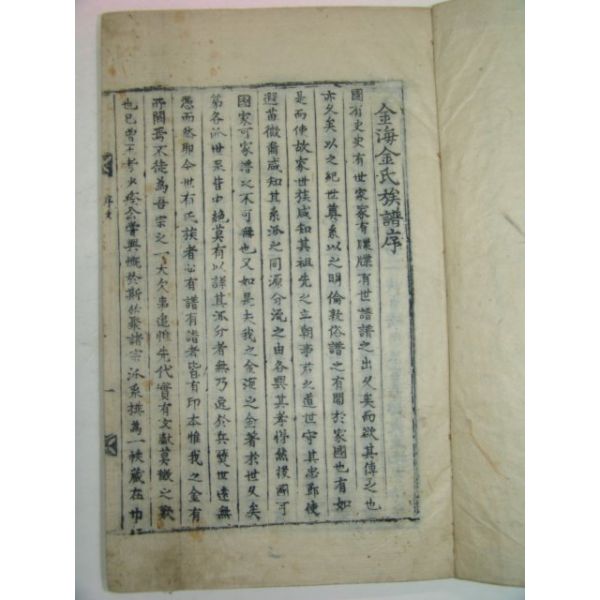 金海金氏族譜序
國有史史有世家家有牒牒有世譜譜之出久矣而欲其傳之也
亦久矣以之紀世尊系以之明倫敦俗譜之有關於家國也有如
是而使故家世族咸知其祖先之立朝事君之道世守其忠節使
遐苗微裔咸知其系派之同源分流之由各興其孝悌然後國可
國家可家譜之不可無也又如是夫我之金海之金著於世久矣
第各派世系皆中絶莫有以詳其派分者無乃逸於兵燹世遠無
憑而然耶今世有氏族者必有譜有譜者皆有印本惟我之金有
所闕焉不徒為吾宗之一大欠事追惟先代實有文獻莫徵之歎
也已曾王考 公嘗興慨於斯 聚諸宗派系撰為一帙藏在巾
序文
一